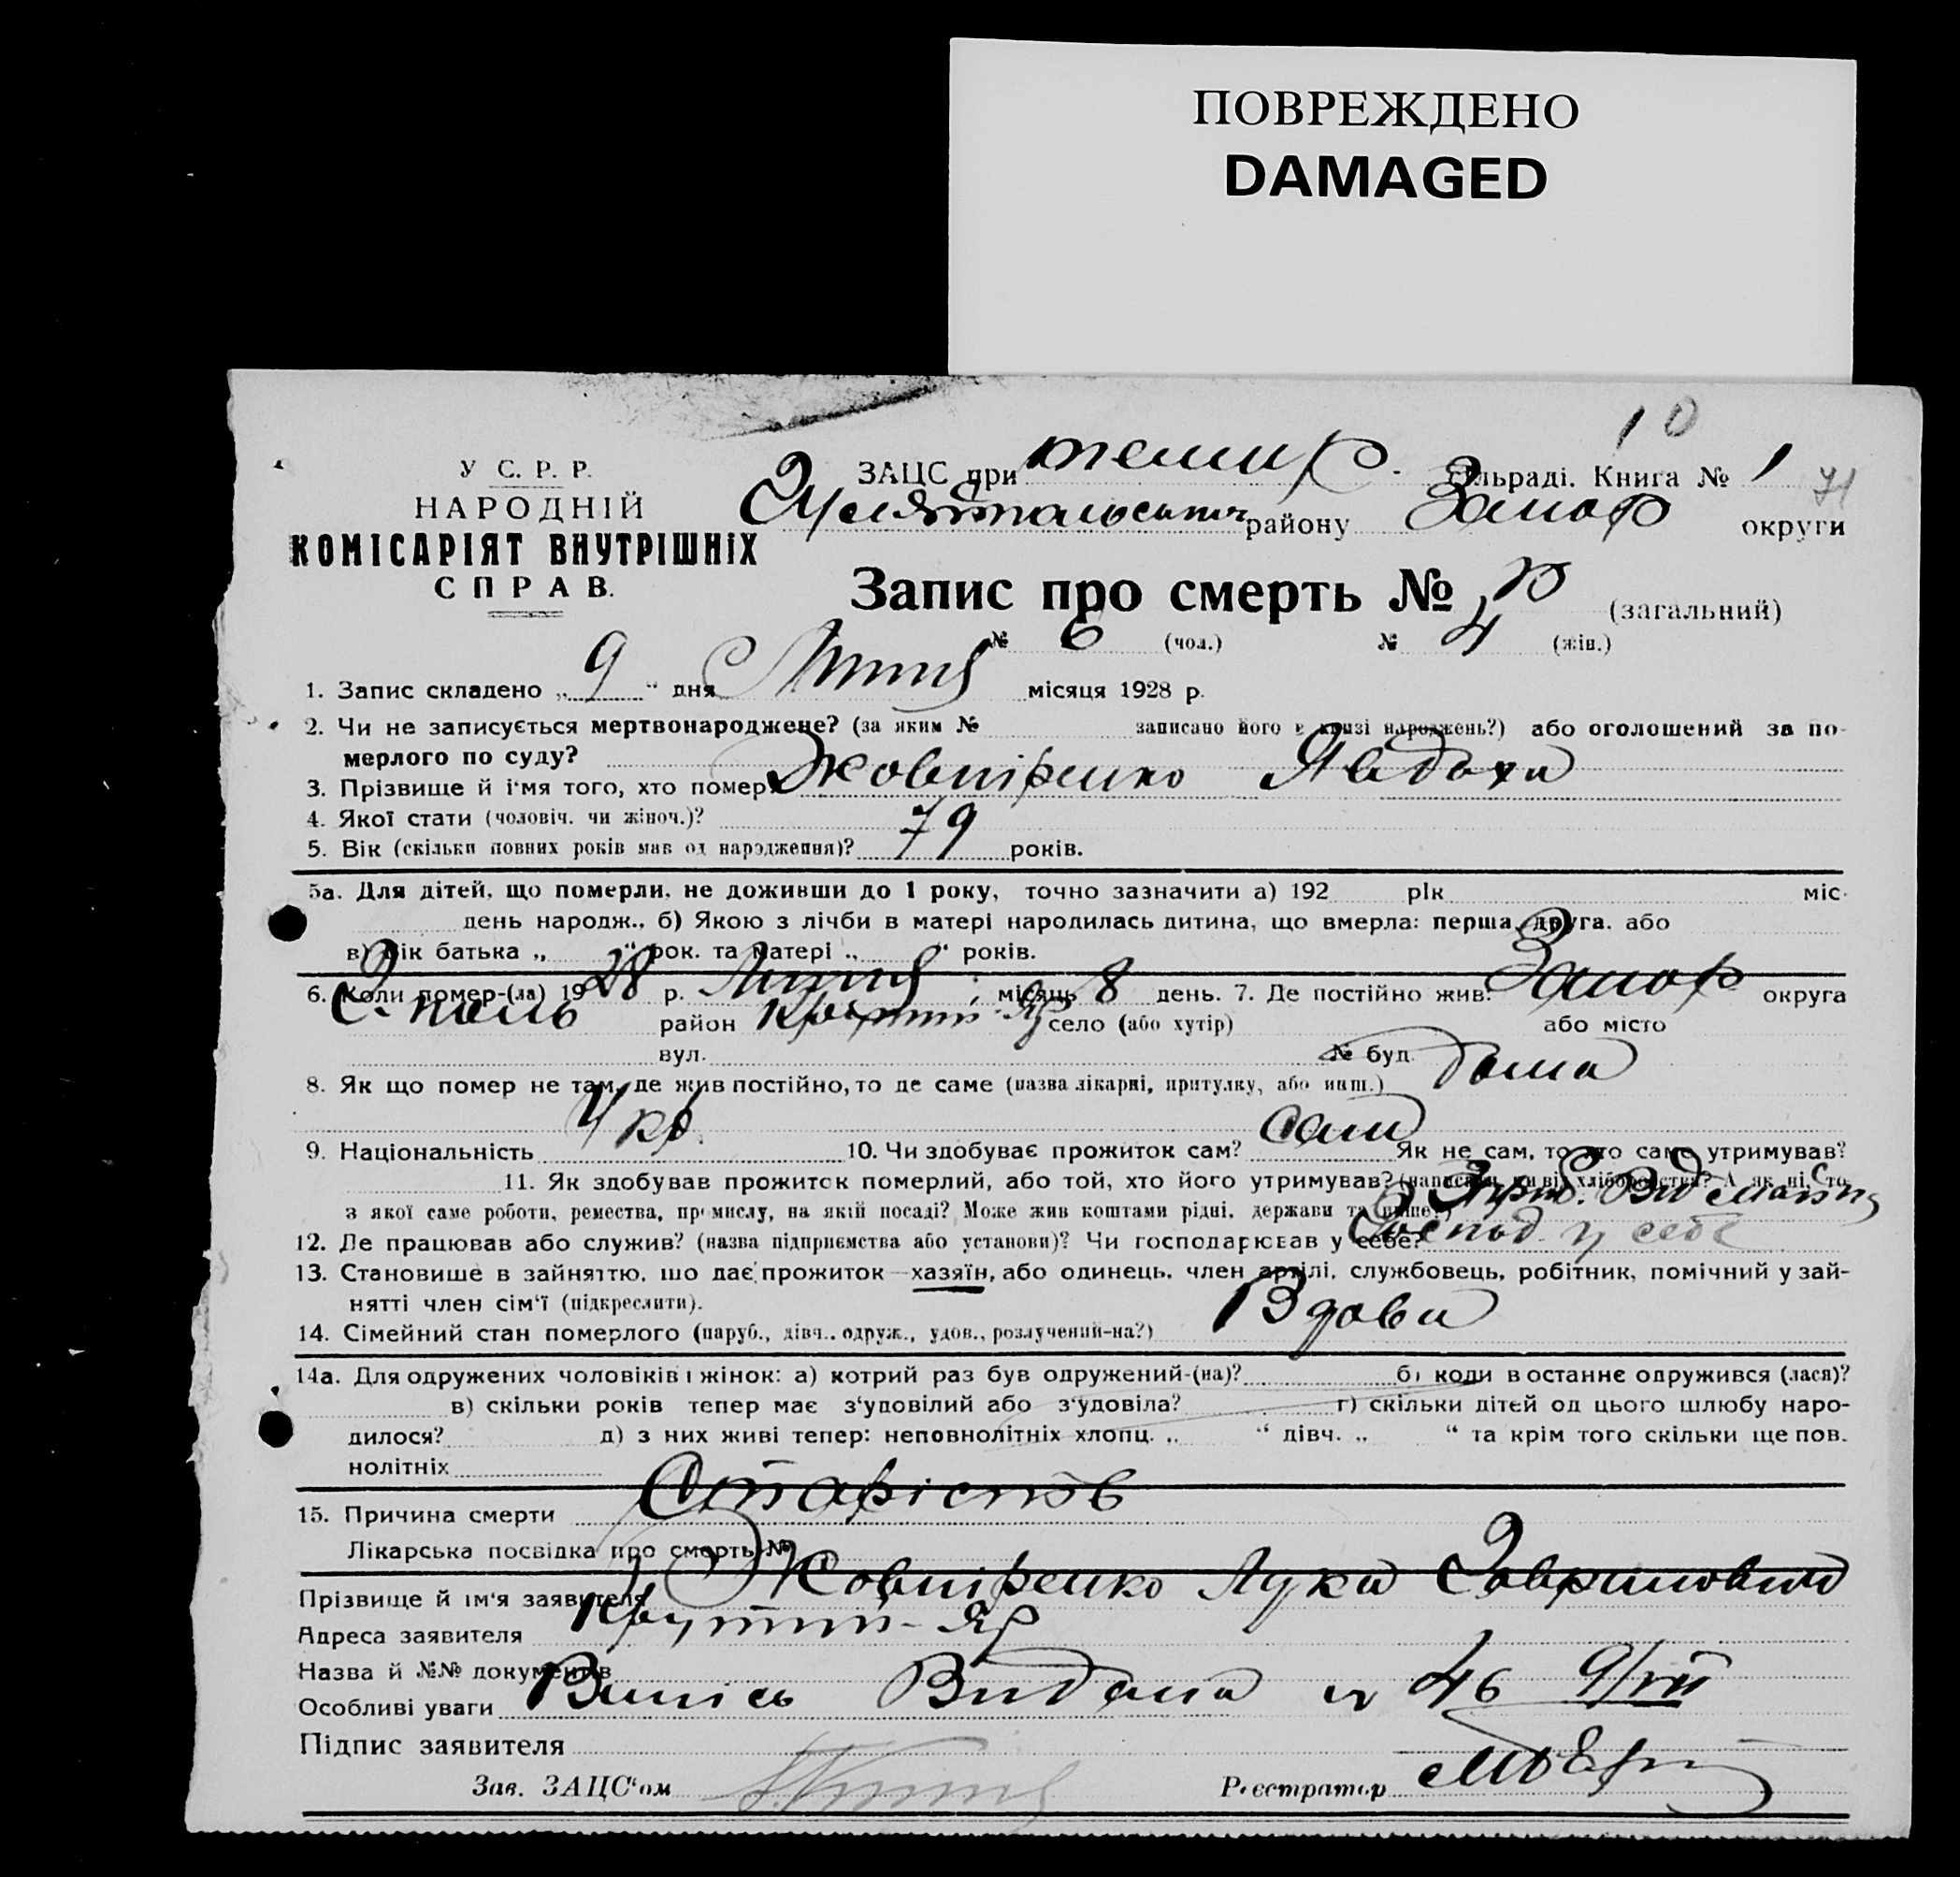 ПОВРЕЖДЕНО
DAMAGED
10
У С. Р. Р.
НАРОДНІЙ
КОМІСАРІЯТ ВНУТРІШНІХ
СПРАВ.
ЗАЦС при темир. сільраді. Книга № 1
71
Гуляйпальськ району Запор округи
Запис про смерть № 10 (загальний)
№ 6 (чол.) № 4 (жін.)
1. Запис складено „ 9 “ дня Липня місяця 1928 р.
2. Чи не записується мертвонароджене? (за яким № записано його в книзі народжень?) або оголошений за по-
мерлого по суду?
3. Прізвище й і'мя того, хто помер Жовпіренко Явдоха
4. Якої стати (чоловіч. чи жіноч.)?
5. Вік (скільки повних років мав од народження)? 79 років.
5а. Для дітей, що померли, не доживши до 1 року, точно зазначити а) 192 рік міс.
день народж., б) Якою з лічби в матері народилась дитина, що вмерла: перша, друга. або
в) вік батька „ “ рок. та матері „ “ років.
6. Коли помер-(ла) 1928 р. Липня місяць 8 день. 7. Де постійно жив: Запор округа
Г. поль район Крутий-Яр село (або хутір) або місто
вул. № буд.
8. Як що помер не там, де жив постійно, то де саме (назва лікарні, притулку, або инш.) дома
9. Національність Укр. 10. Чи здобуває прожиток сам? сам Як не сам, то хто саме утримував?
11. Як здобував прожиток померлий, або той, хто його утримував? (написати, чи від хліборобства? А як ні, то
з якої саме роботи, ремества, промислу, на якій посаді? Може жив коштами рідні, держави та инше?)
12. Де працював або служив? (назва підприємства або установи)? Чи господарював у себе? Господ. у себе
13. Становище в зайняттю, що дає прожиток—хазяїн, або одинець, член артілі, службовець, робітник, помічний у зай-
нятті член сім'ї (підкреслити).
14. Сімейний стан померлого (паруб., дівч., одруж., удов., розлучений-на?) Вдова
14а. Для одружених чоловіків і жінок: а) котрий раз був одружений-(на)? б) коли в останнє одружився (лася)?
в) скільки років тепер має з'удовілий або з'удовіла? г) скільки дітей од цього шлюбу наро-
дилося? д) з них живі тепер: неповнолітніх хлопц. „ “ дівч. „ “ та крім того скільки ще пов.
нолітніх
15. Причина смерти Старість
Лікарська посвідка про смерть №
Прізвище й ім'я заявителя Жовпіренко Лука Гаврилович
Адреса заявителя Крутий-Яр
Назва й №№ документів
Особливі уваги Випісь Видана № 46 9/VII
Підпис заявителя
Зав. ЗАЦС'ом Реєстратор